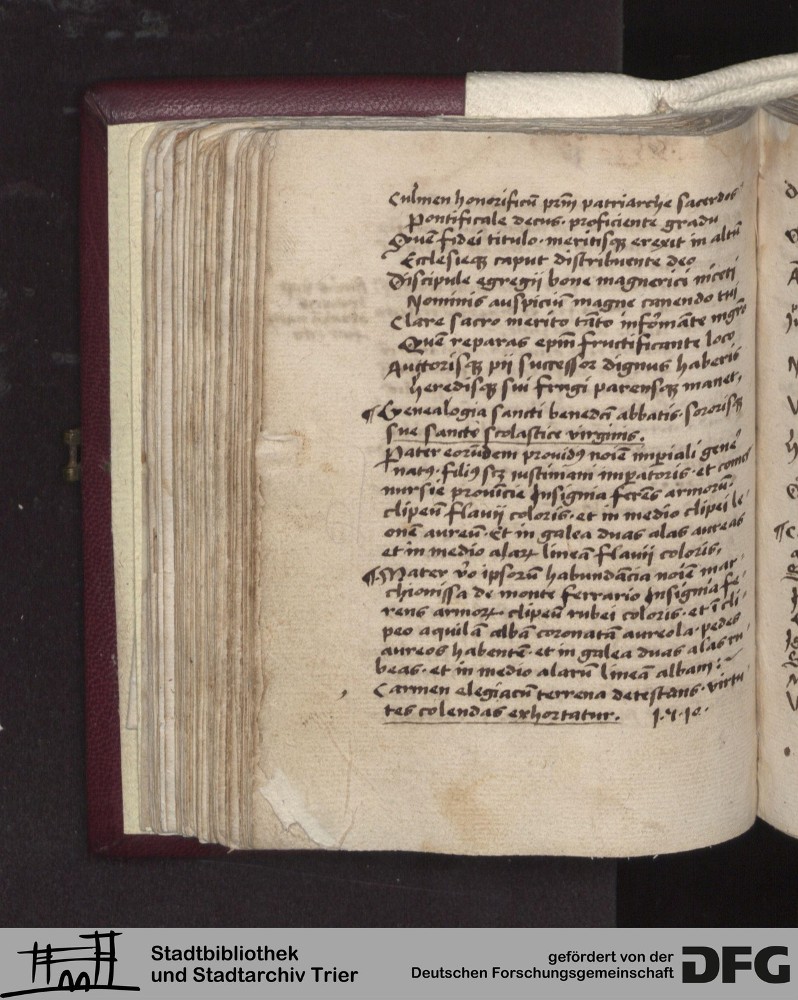 Culmen honorificū prm̄ patriarche sacerdos
Pontificale decus· proficiente gradu
Quē fidei titulo· meritisqꝫ erexit in altū
Ecclesieqꝫ caput distribuente deo
Discipule egregii bone magnerici niceti
Nominis auspiciū magne canendo tui
Clare sacro merito tāto infōmāte mgro
Quē reparas ep̄m fructificante loco
Auctorisqꝫ pii successor dignus haberis
heredisqꝫ sui frugi parensqꝫ manet.
¶ Genealogia sancti benedcī abbatis· sororisqꝫ
sue sancte scolastice virginis.
Pater eorūdem prouidꝰ noīe imperiali gene
natꝰ· filiꝰ scꝫ iustiniani impatoris· et comes
nursie prouīcie Insignia ferēs armorū·
clipeū flauij coloris· et in medio clipei le
onē aureū· Et in galea duas alas aureas
et in medio alaꝝ lineā flauij coloris,
¶ Mater v̄o ipsorū habundācia noīe mar
chionissa de monte ferrario Insignia fe
rens armoꝝ clipeū rubei coloris· et ī cli
peo aquilā albā coronatā aureola· pedes
aureos habentē· et in galea duas alas ru
beas· et in medio alarū lineā albam:
Carmen elegiacū terrena detestans· virtu
tes colendas exhortatur.
Stadtbibliothek
und Stadtarchiv Trier
gefördert von der
Deutschen Forschungsgemeinschaft
DFG